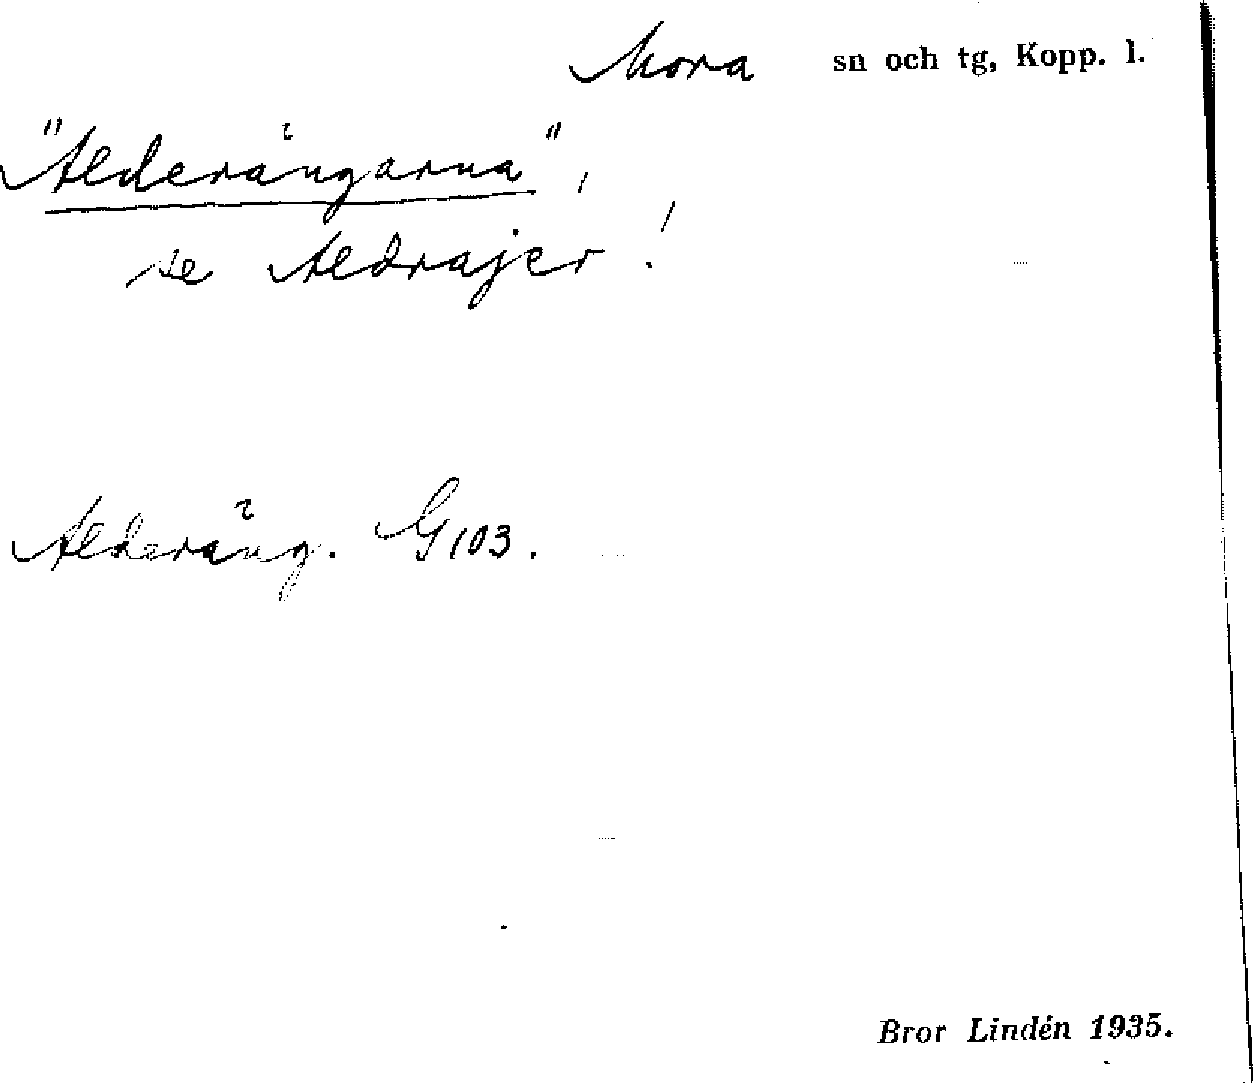 Mora sn och tg, Kopp. l.
"Alderängarna",
se Aldrajer!
Alderäng. G103.
Bror Lindén 1935.